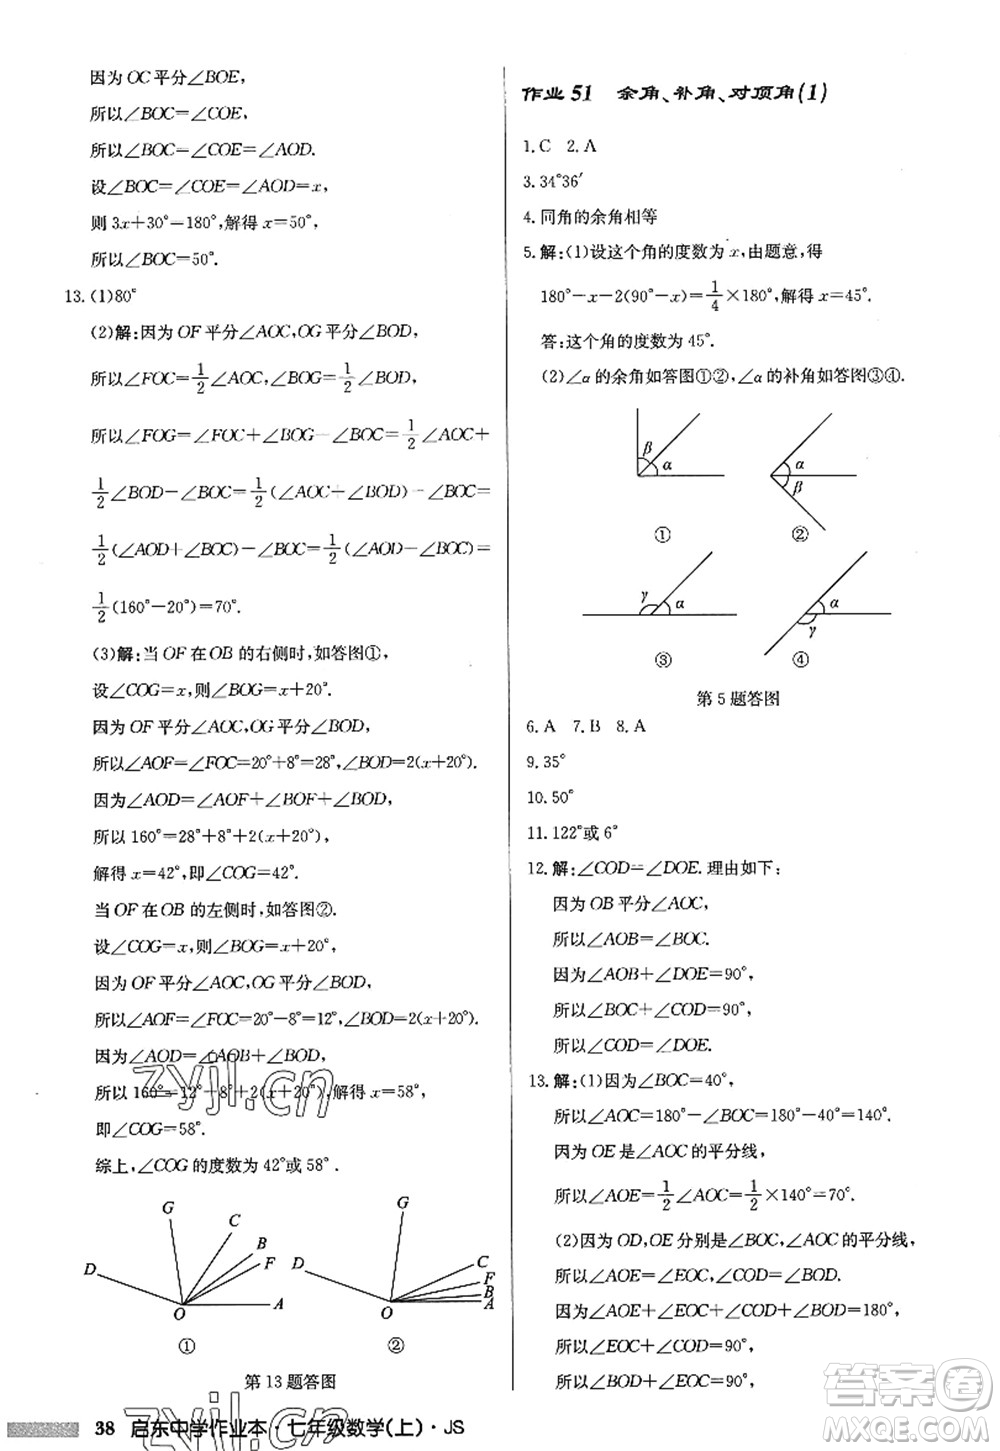 因为 OC 平分∠BOE,
所以∠BOC=∠COE,
所以∠BOC=∠COE=∠AOD.
设∠BOC=∠COE=∠AOD=x,
则 3x+30°=180°,解得 x=50°,
所以∠BOC=50°.
13.(1)80°
(2)解:因为 OF 平分∠AOC,OG 平分∠BOD,
所以∠FOC=1/2∠AOC,∠BOG=1/2∠BOD,
所以∠FOG=∠FOC+∠BOG-∠BOC=1/2∠AOC+
1/2∠BOD-∠BOC=1/2(∠AOC+∠BOD)-∠BOC=
1/2(∠AOD+∠BOC)-∠BOC=1/2(∠AOD-∠BOC)=
1/2(160°-20°)=70°.
(3)解:当 OF 在 OB 的右侧时,如答图①,
设∠COG=x,则∠BOG=x+20°.
因为 OF 平分∠AOC,OG 平分∠BOD,
所以∠AOF=∠FOC=20°+8°=28°,∠BOD=2(x+20°).
因为∠AOD=∠AOF+∠BOF+∠BOD,
所以 160°=28°+8°+2(x+20°),
解得 x=42°,即∠COG=42°.
当 OF 在 OB 的左侧时,如答图②.
设∠COG=x,则∠BOG=x+20°,
因为 OF 平分∠AOC,OG 平分∠BOD,
所以∠AOF=∠FOC=20°-8°=12°,∠BOD=2(x+20°).
因为∠AOD=∠AOB+∠BOD,
所以 160°=12°-8°+2(x+20°),解得 x=58°,
即∠COG=58°.
综上,∠COG 的度数为 42°或 58°.
G C B F D O A
①
G C F B A D O
②
第 13 题答图
38 启东中学作业本·七年级数学(上)·JS
作业 51 余角、补角、对顶角(1)
1.C 2.A
3.34°36′
4.同角的余角相等
5.解:(1)设这个角的度数为 x,由题意,得
180°-x-2(90°-x)=1/4×180°,解得 x=45°.
答:这个角的度数为 45°.
(2)∠α 的余角如答图①②,∠α 的补角如答图③④.
β α
①
α β
②
γ α
③
α γ
④
第 5 题答图
6.A 7.B 8.A
9.35°
10.50°
11.122°或 6°
12.解:∠COD=∠DOE.理由如下:
因为 OB 平分∠AOC,
所以∠AOB=∠BOC.
因为∠AOB+∠DOE=90°,
所以∠BOC+∠COD=90°,
所以∠COD=∠DOE.
13.解:(1)因为∠BOC=40°,
所以∠AOC=180°-∠BOC=180°-40°=140°.
因为 OE 是∠AOC 的平分线,
所以∠AOE=1/2∠AOC=1/2×140°=70°.
(2)因为 OD,OE 分别是∠BOC,∠AOC 的平分线,
所以∠AOE=∠EOC,∠COD=∠BOD.
因为∠AOE+∠EOC+∠COD+∠BOD=180°,
所以∠EOC+∠COD=90°,
所以∠AOE+∠BOD=∠EOC+∠COD=90°.
zyjl.cn
答案圈